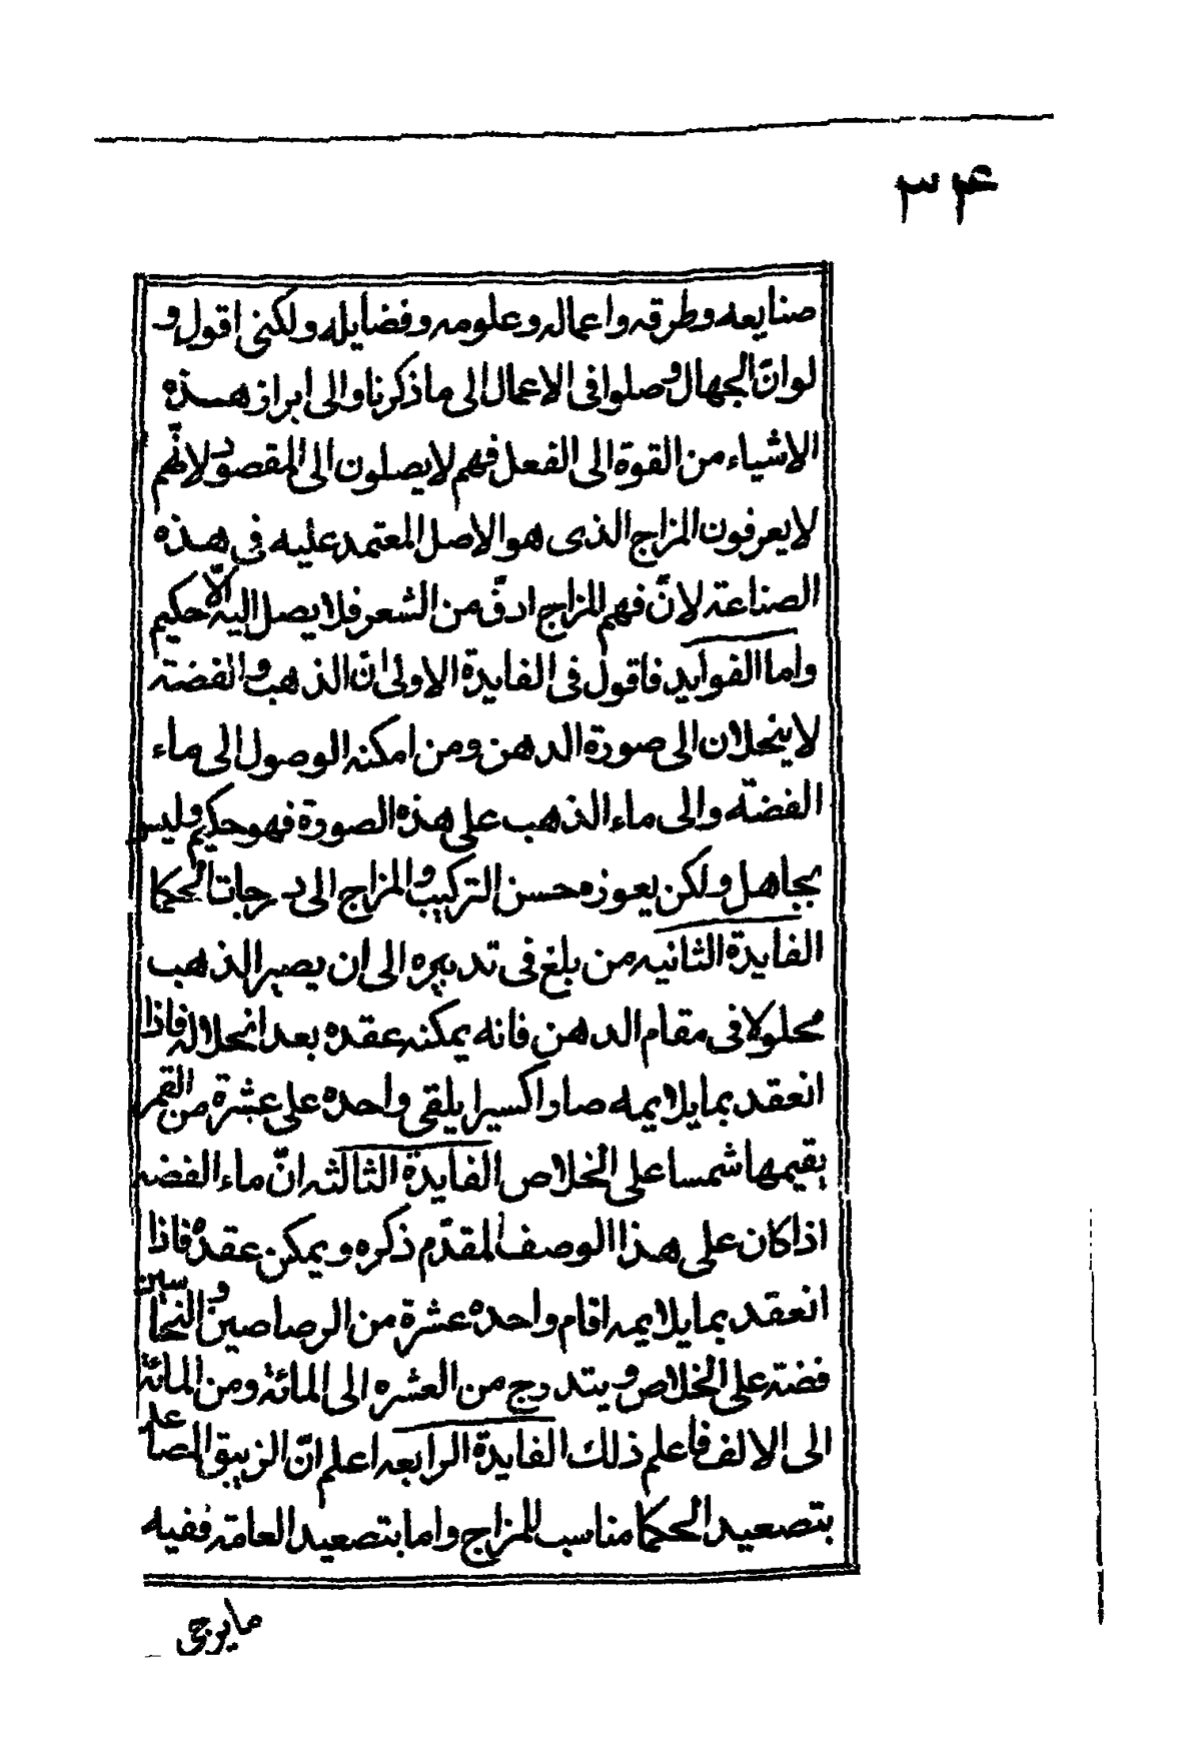 ۳۴
صنايعه وطرقه واعماله وعلومه وفضايله ولكنى اقول و
لوانّ الجهال وصلوا فى الاعمال الى ما ذكرنا والى ابراز هذه
الاشياء من القوة الى الفعل فهم لا يصلون الى المقصود لانّهم
لا يعرفون المزاج الذى هو الاصل المعتمد عليه فى هذه
الصناعة لانّ فهم المزاج ادقّ من الشعر فلا يصل اليه الّا حكيم
واما الفوايد فاقول فى الفايدة الاولى انّ الذهب والفضة
لا ينحلان الى صورة الدهن ومن امكنه الوصول الى ماء
الفضّه والى ماء الذهب على هذه الصورة فهو حكيم وليس
بجاهل ولكن يعوزه حسن التركيب والمزاج الى درجات الحكما
الفايدة الثانيه من بلغ فى تدبيره الى ان يصير الذهب
محلولا فى مقام الدهن فانه يمكنه عقده بعد انحلاله فاذا
انعقد بما يلايمه صار اكسيرا يلقى واحده على عشرة من القمر
يقيمها شمسا على الخلاص الفايدة الثالثه انّ ماء الفضه
اذا كان على هذا الوصف المقدّم ذكره ويمكن عقده فاذا
انعقد بما يلايمه اقام واحده عشرة من الرصاصين والنحاسين
فضة على الخلاص ويتدرج من العشره الى المائة ومن المائة
الى الالف فاعلم ذلك الفايدة الرابعه اعلم انّ الزيبق المصاعد
بتصعيد الحكما مناسب للمزاج واما بتصعيد العامة ففيه
ما يرجى